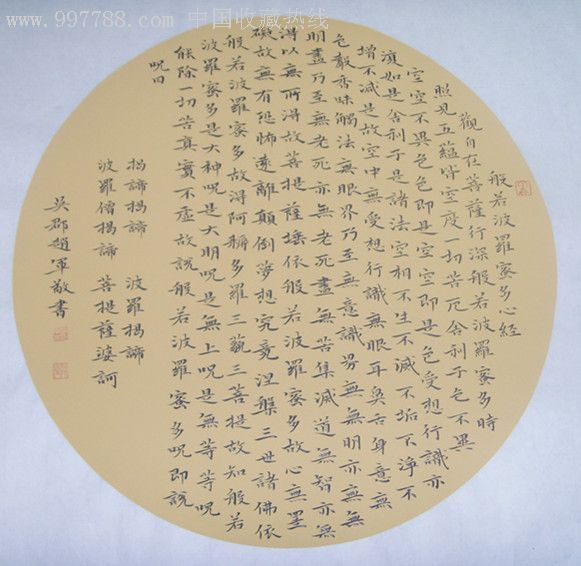 www.997788.com 中国收藏热线
般若波羅蜜多心經
觀自在菩薩行深般若波羅蜜多時
照見五蘊皆空度一切苦厄舍利子色不異
空空不異色色即是空空即是色受想行識亦
復如是舍利子是諸法空相不生不滅不垢不淨不
增不減是故空中無受想行識無眼耳鼻舌身意無
色聲香味觸法無眼界乃至無意識界無無明亦無無
明盡乃至無老死亦無老死盡無苦集滅道無智亦無
得以無所得故菩提薩埵依般若波羅蜜多故心無罣
礙故無有恐怖遠離顛倒夢想究竟涅槃三世諸佛依
般若波羅蜜多故得阿耨多羅三藐三菩提故知般若
波羅蜜多是大神呪是大明呪是無上呪是無等等呪
能除一切苦真實不虛故說般若波羅蜜多呪即說
呪曰
揭諦揭諦 波羅揭諦
波羅僧揭諦 菩提薩婆訶
吳郡趙軍敬書